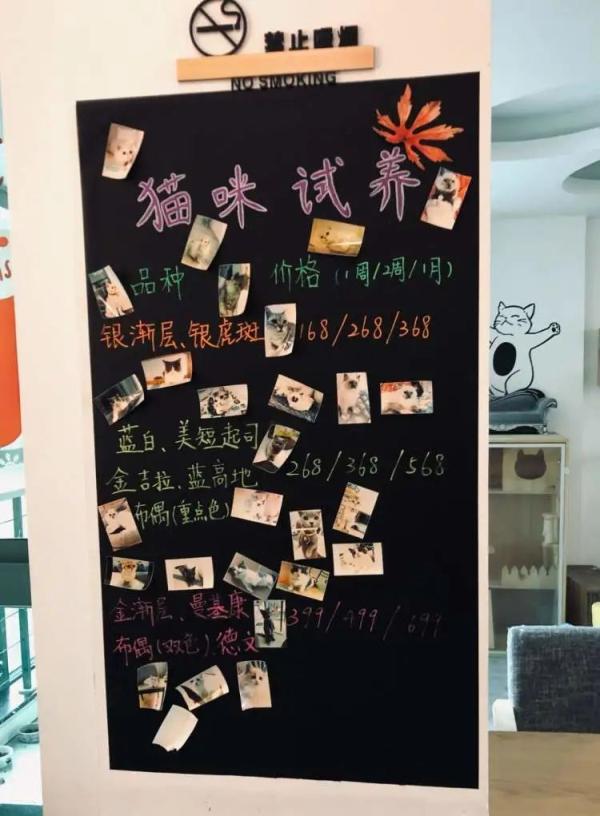 禁止吸烟
NO SMOKING
猫咪试养
品种 价格(1周/2周/1月)
银渐层、银虎斑 168/268/368
蓝白、美短起司
金吉拉、蓝高地 268/368/568
布偶(重点色)
金渐层、曼基康 399/499/699
布偶(双色)、德文